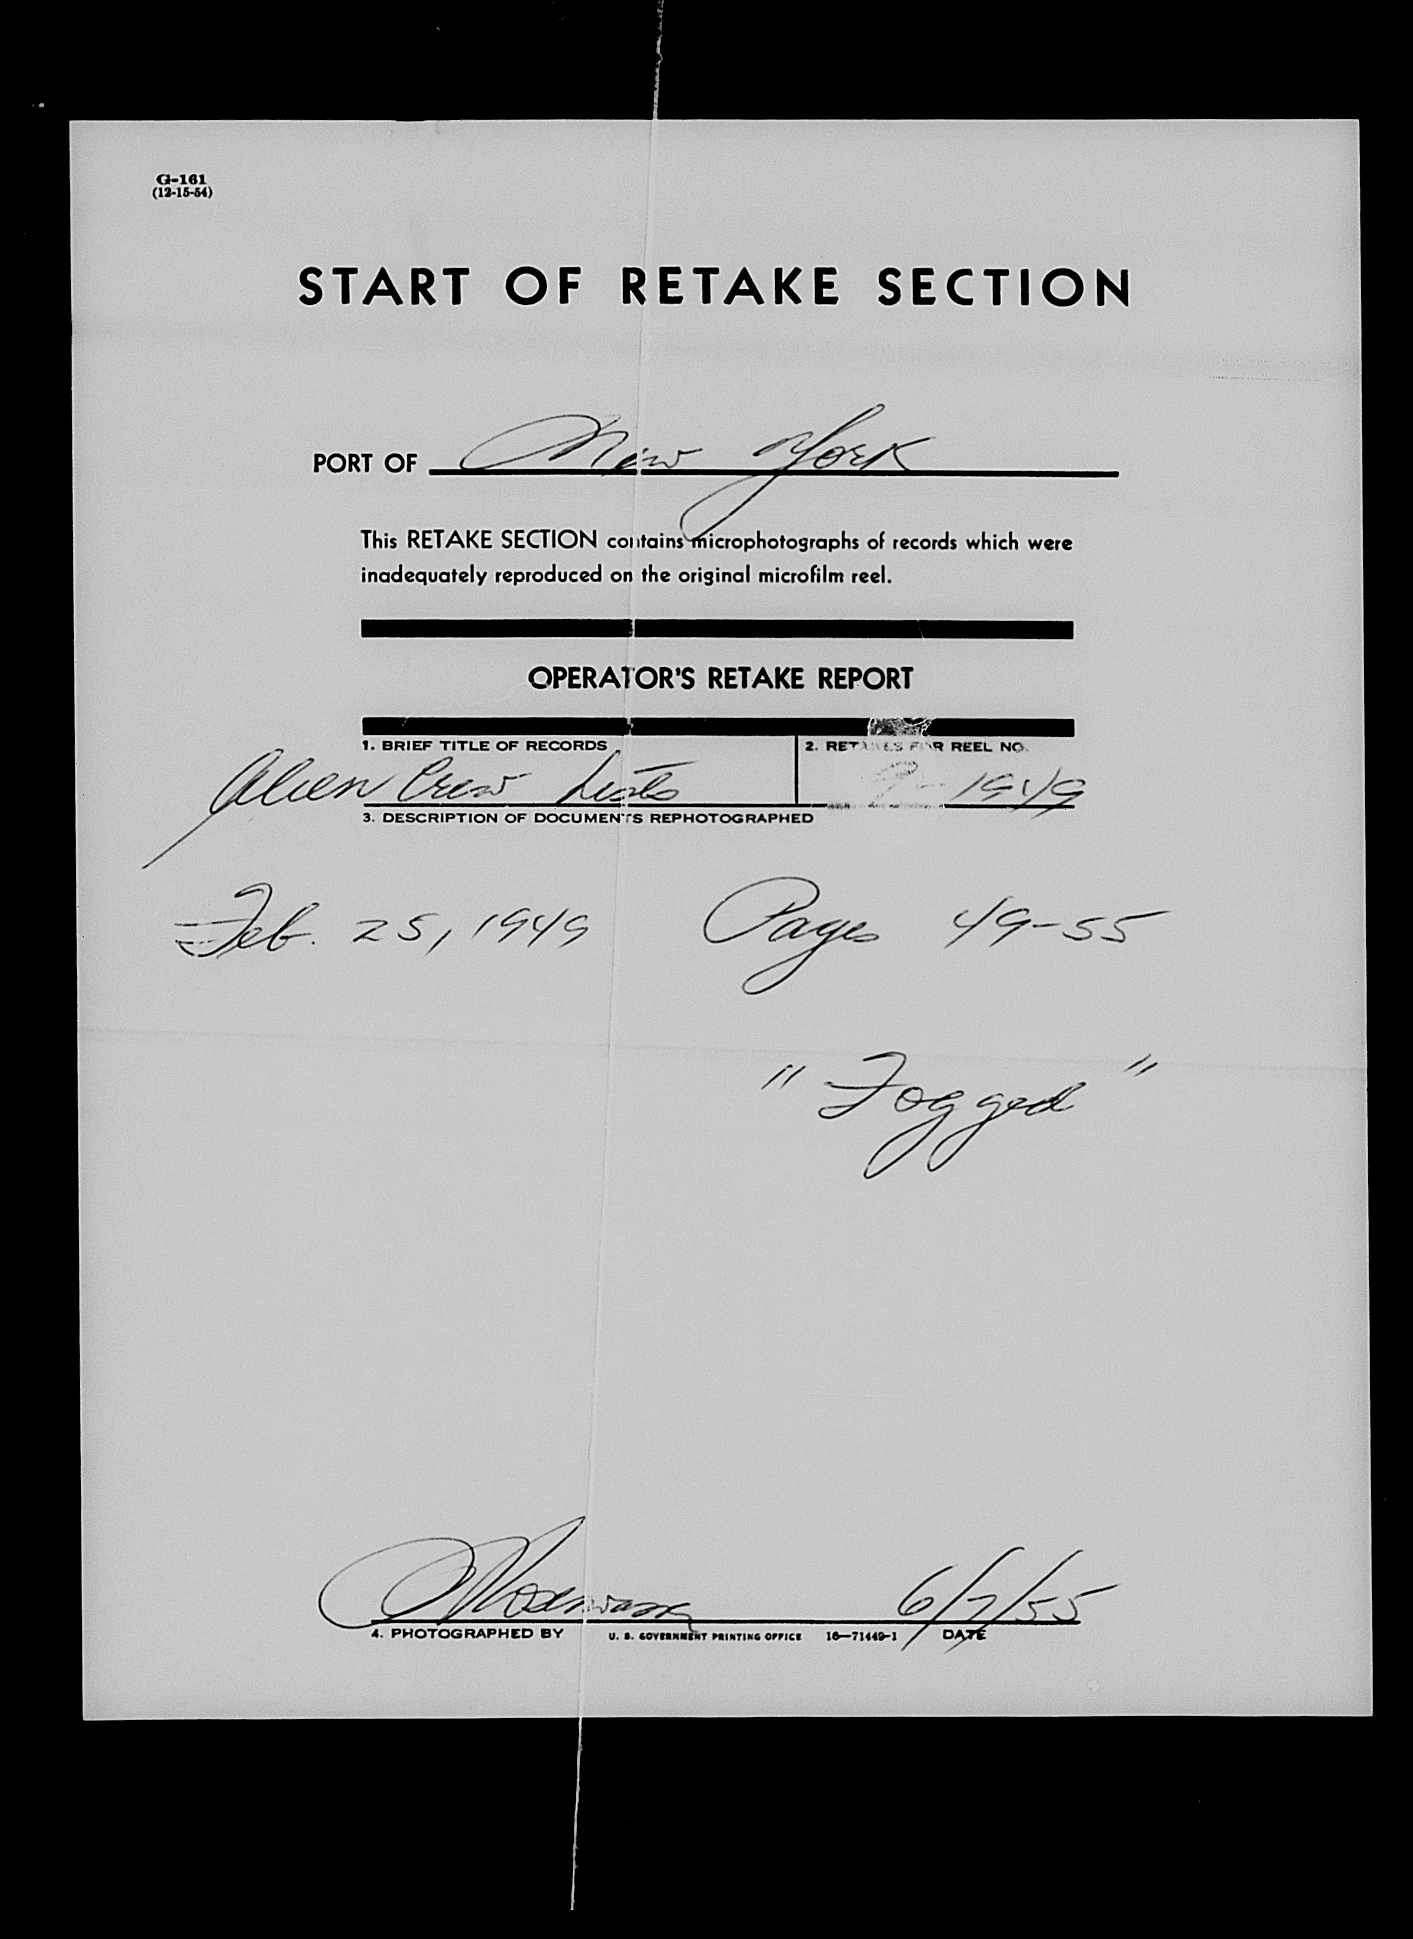 G-161
(12-15-54)
START OF RETAKE SECTION
PORT OF New York
This RETAKE SECTION contains microphotographs of records which were
inadequately reproduced on the original microfilm reel.
OPERATOR'S RETAKE REPORT
1. BRIEF TITLE OF RECORDS 2. RETAKES FOR REEL NO.
Alien Crew Lists 1949
3. DESCRIPTION OF DOCUMENTS REPHOTOGRAPHED
Feb. 25, 1949 Pages 49-55
"Fogged"
6/7/55
4. PHOTOGRAPHED BY U. S. GOVERNMENT PRINTING OFFICE 16—71449-1 DATE